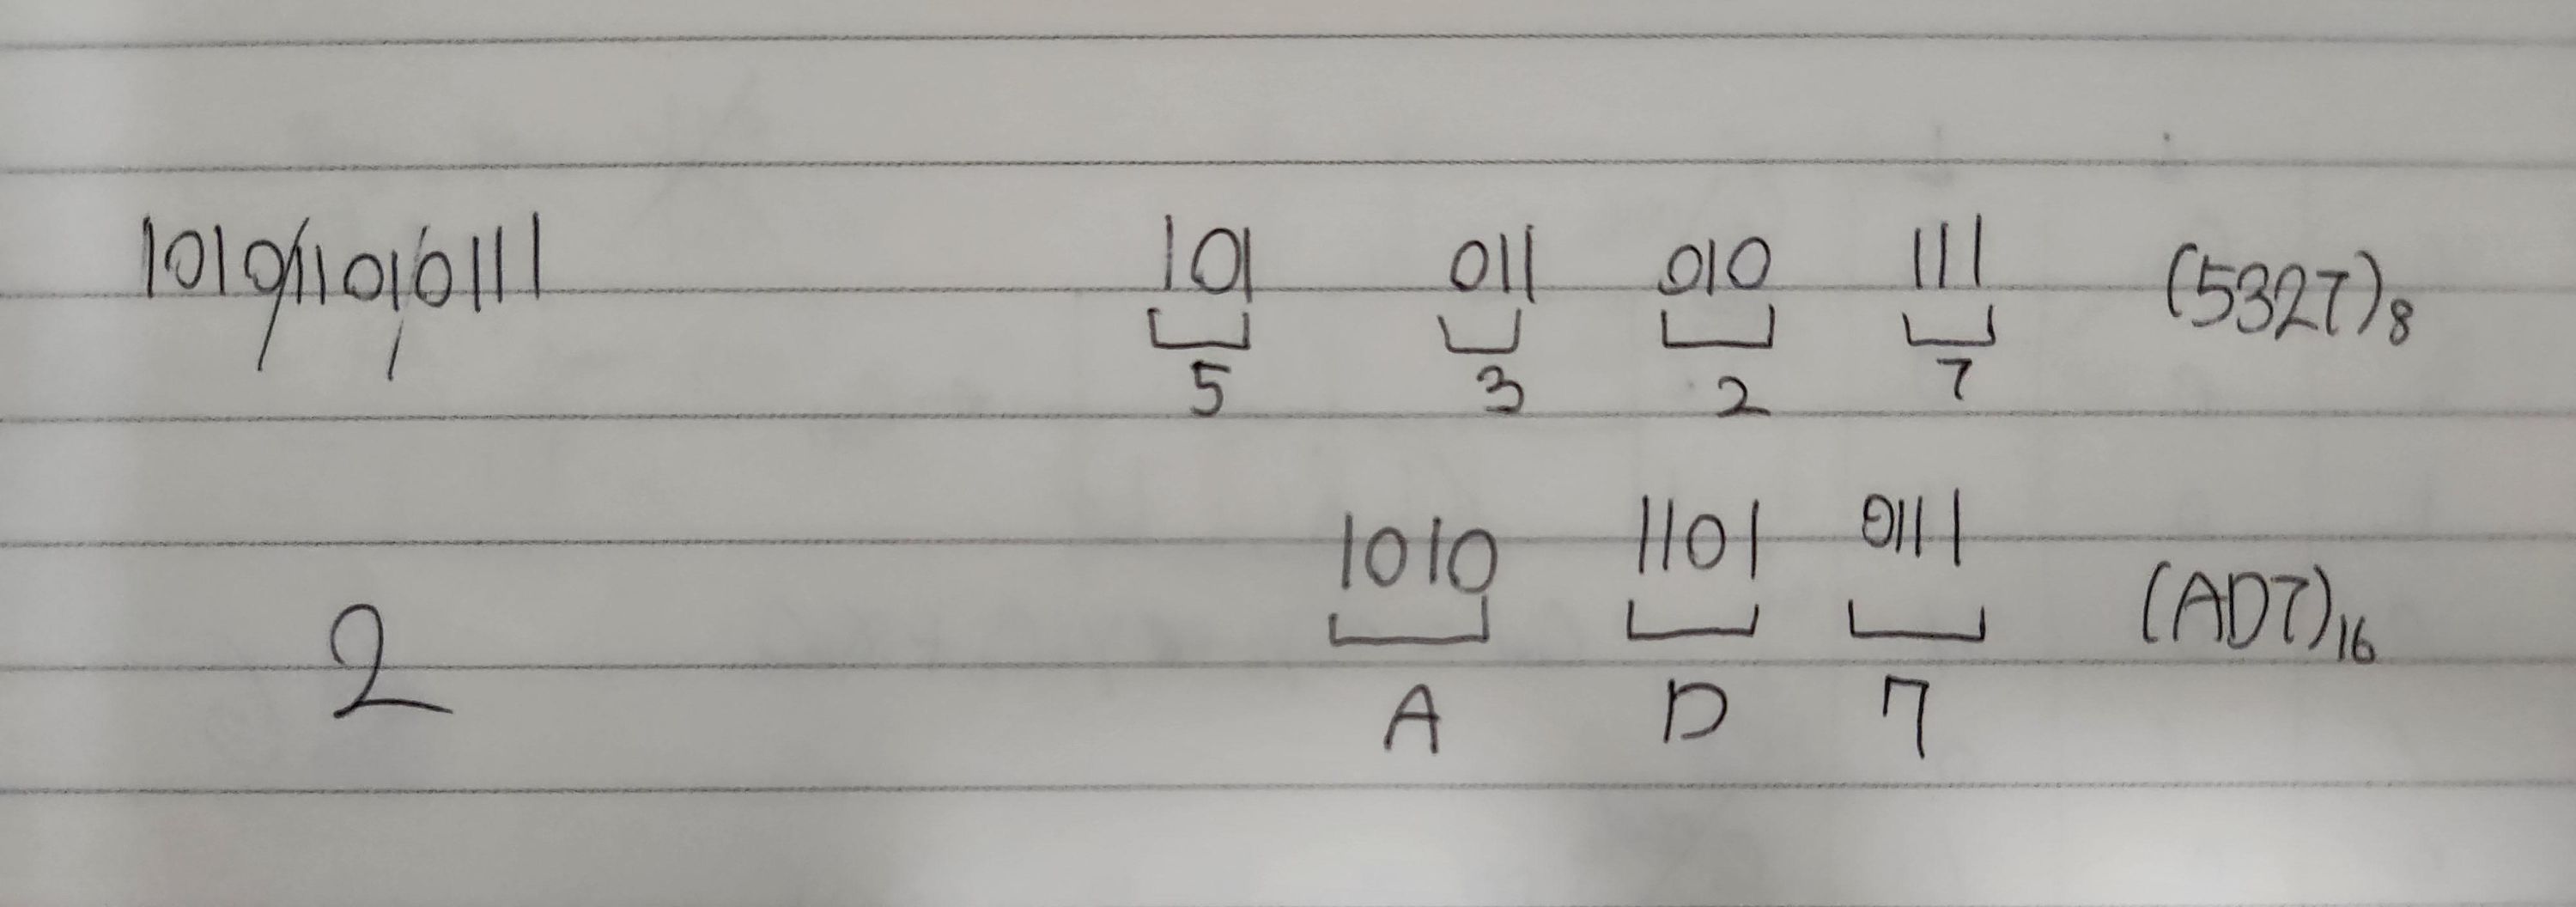 1010/1101/0111 101 011 010 111 (5327)8
5 3 2 7
1010 1101 0111 (AD7)16
2
A D 7